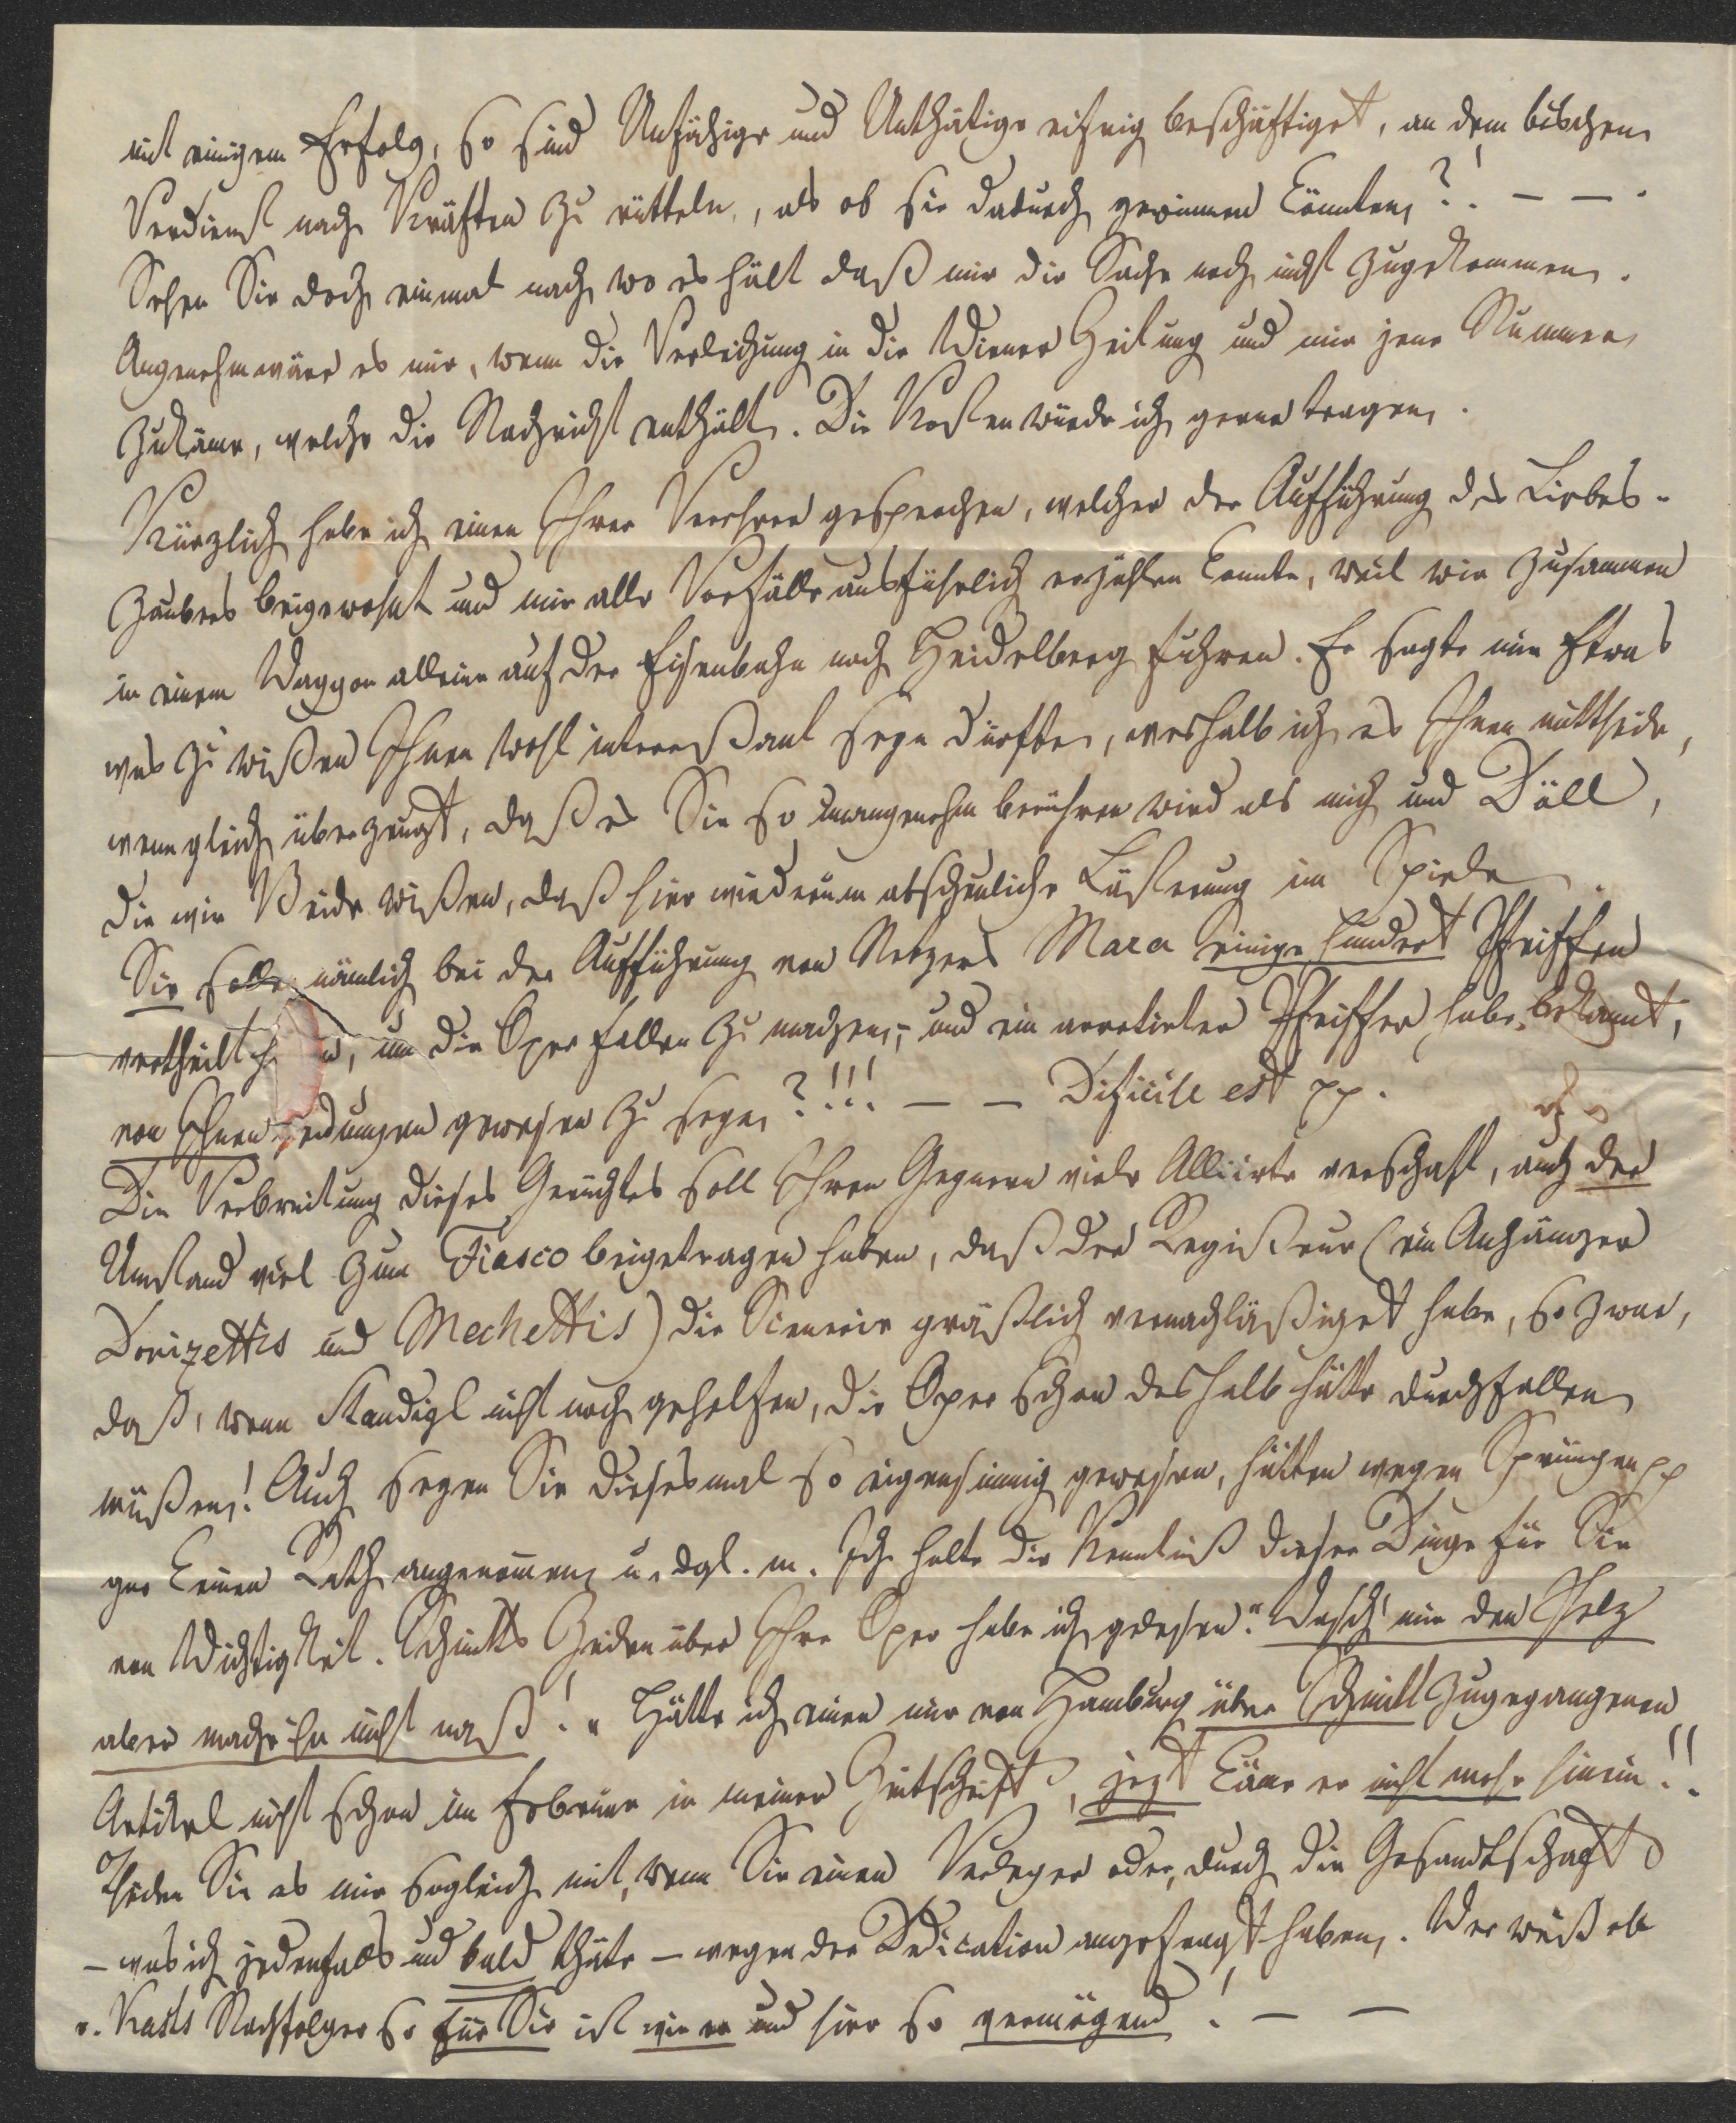 mit einigem Erfolg, so sind Unfähige und Unthätige eifrig beschäftiget, an dem bischen
Verdienst nach Kräften zu rütteln, als ob sie dadurch gewinnen könnten?! — — .
Sehen Sie doch einmal nach wo es hält daß mir die Sache noch nicht zugekommen.
Angenehm wäre es mir, wenn die Verleihung in die Wiener Zeitung und mir jene Nummer
zukäme, welche die Nachricht enthält. Die Kosten würde ich gerne tragen.
Kürzlich habe ich einen Ihrer Verehrer gesprochen, welcher der Aufführung des Liebes-
zaubers beigewohnt und mir alle Vorfälle ausführlich erzählen konnte, weil wir zusammen
in einem Waggon allein auf der Eisenbahn nach Heidelberg fuhren. Er sagte mir Etwas
was zu wißen Ihnen wohl intereßant seyn dürfte, weshalb ich es Ihnen mittheile,
wenngleich überzeugt, daß es Sie so unangenehm berühren wird als mich und Döll,
die wir Beide wißen, daß hier wiederum abscheuliche Lästerung im Spiele.
Sie sollen nämlich bei der Aufführung von Netzers Mara einige hundert Pfeiffen
vertheilt h n, um die Oper fallen zu machen,- und ein arretirter Pfeiffer habe bekannt,
von Ihnen gedungen gewesen zu seyn?!!! — — Dificile est pp.
Die Verbreitung dieses Gerüchtes soll Ihren Gegnern viele Alliirte verschaft, auch der
Umstand viel zum Fiasco beigetragen haben, daß der Regißeur (ein Anhänger
Donizettis und Mechettis) die Scenerie gräßlich vernachläßiget habe, so zwar,
daß, wenn Staudigl nicht noch geholfen, die Oper schon deshalb hätte durchfallen
müßen! Auch seyen Sie diesesmal so eigensinnig gewesen, hätten wegen Sprüngen pp
gar keinen Rath angenommen u. dgl. m. Ich halte die Kenntniß dieser Dinge für Sie
von Wichtigkeit. Schmitts Zeilen über Ihre Oper habe ich gelesen: "Wasch' mir den Pelz
aber mache ihn nicht naß!" Hätte ich einen mir von Hamburg über Schmitt zugegangenen
Artikel nicht schon im Februar in meiner Zeitschrift, jezt käme er nicht mehr hinein!!
Theilen Sie es mir sogleich mit, wenn Sie einen Verleger oder, durch die Gesandtschaft
— was ich jedenfals und bald thäte — wegen der Dedication angefragt haben. Wer weiß ob
v. Kasts Nachfolger so für Sie ist wie er und hier so vermögend! — —